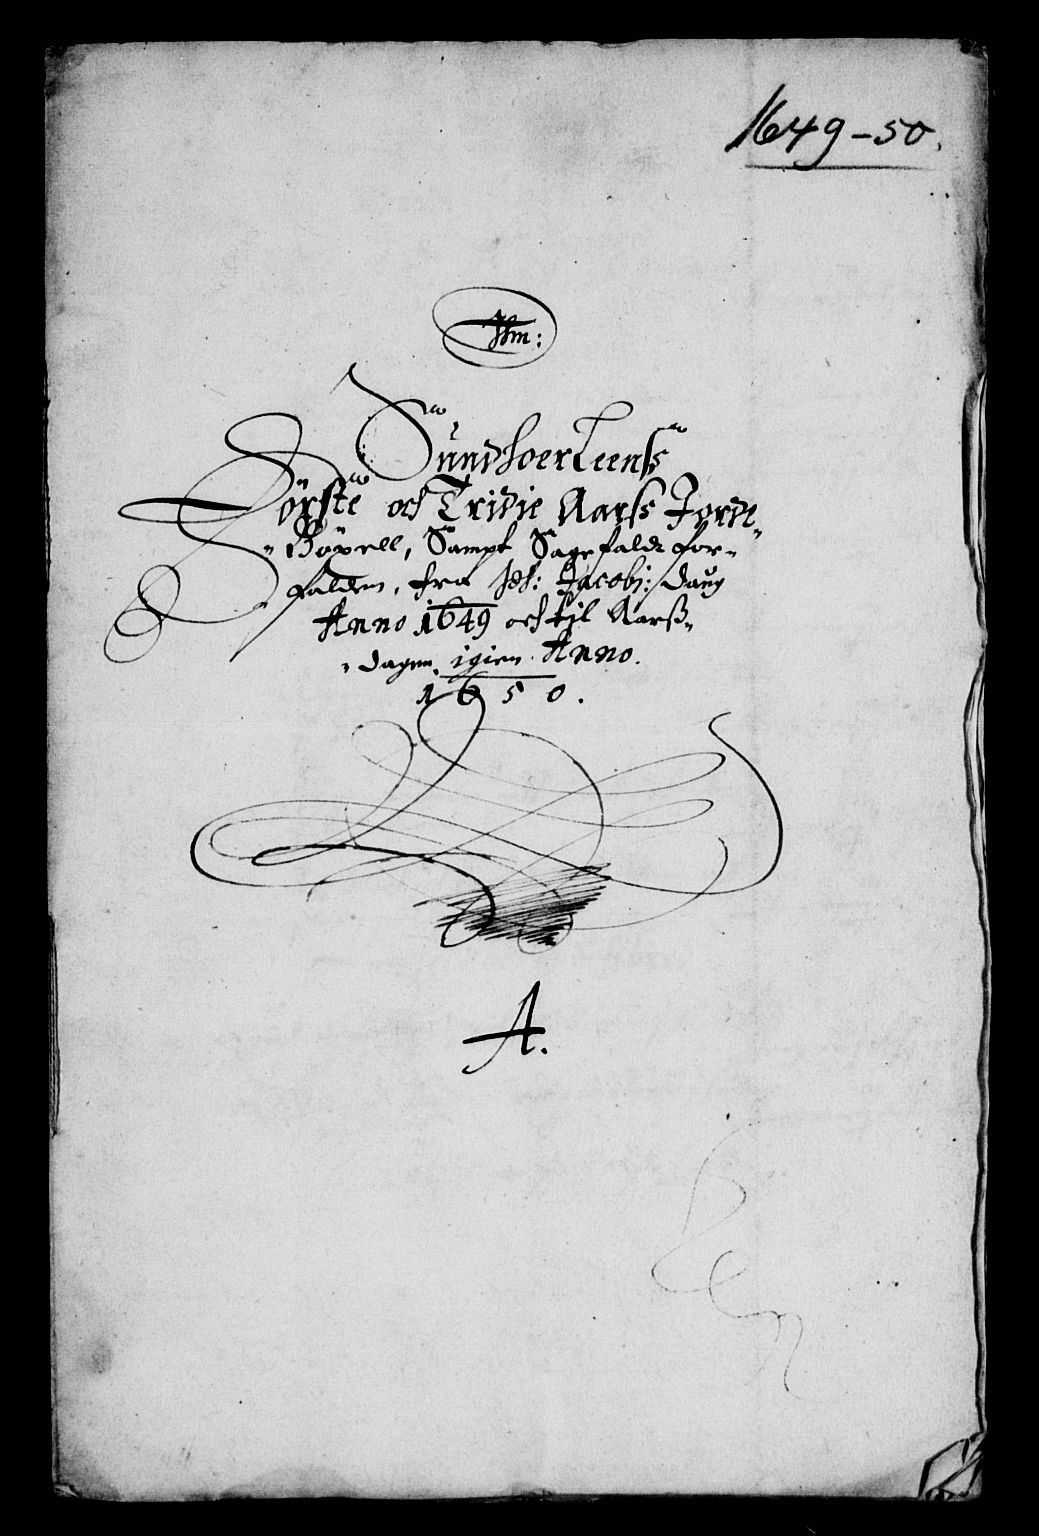 1649-50.
Jhm:
Sundhoerleens
Förste och Tridie Aarss Jorde-
Böxell, Sampt Sagefaldt for-
falden, fra Sct: Jacobj: daug
Anno 1649 och til Aarss-
dagen igien Anno.
1650.
A.